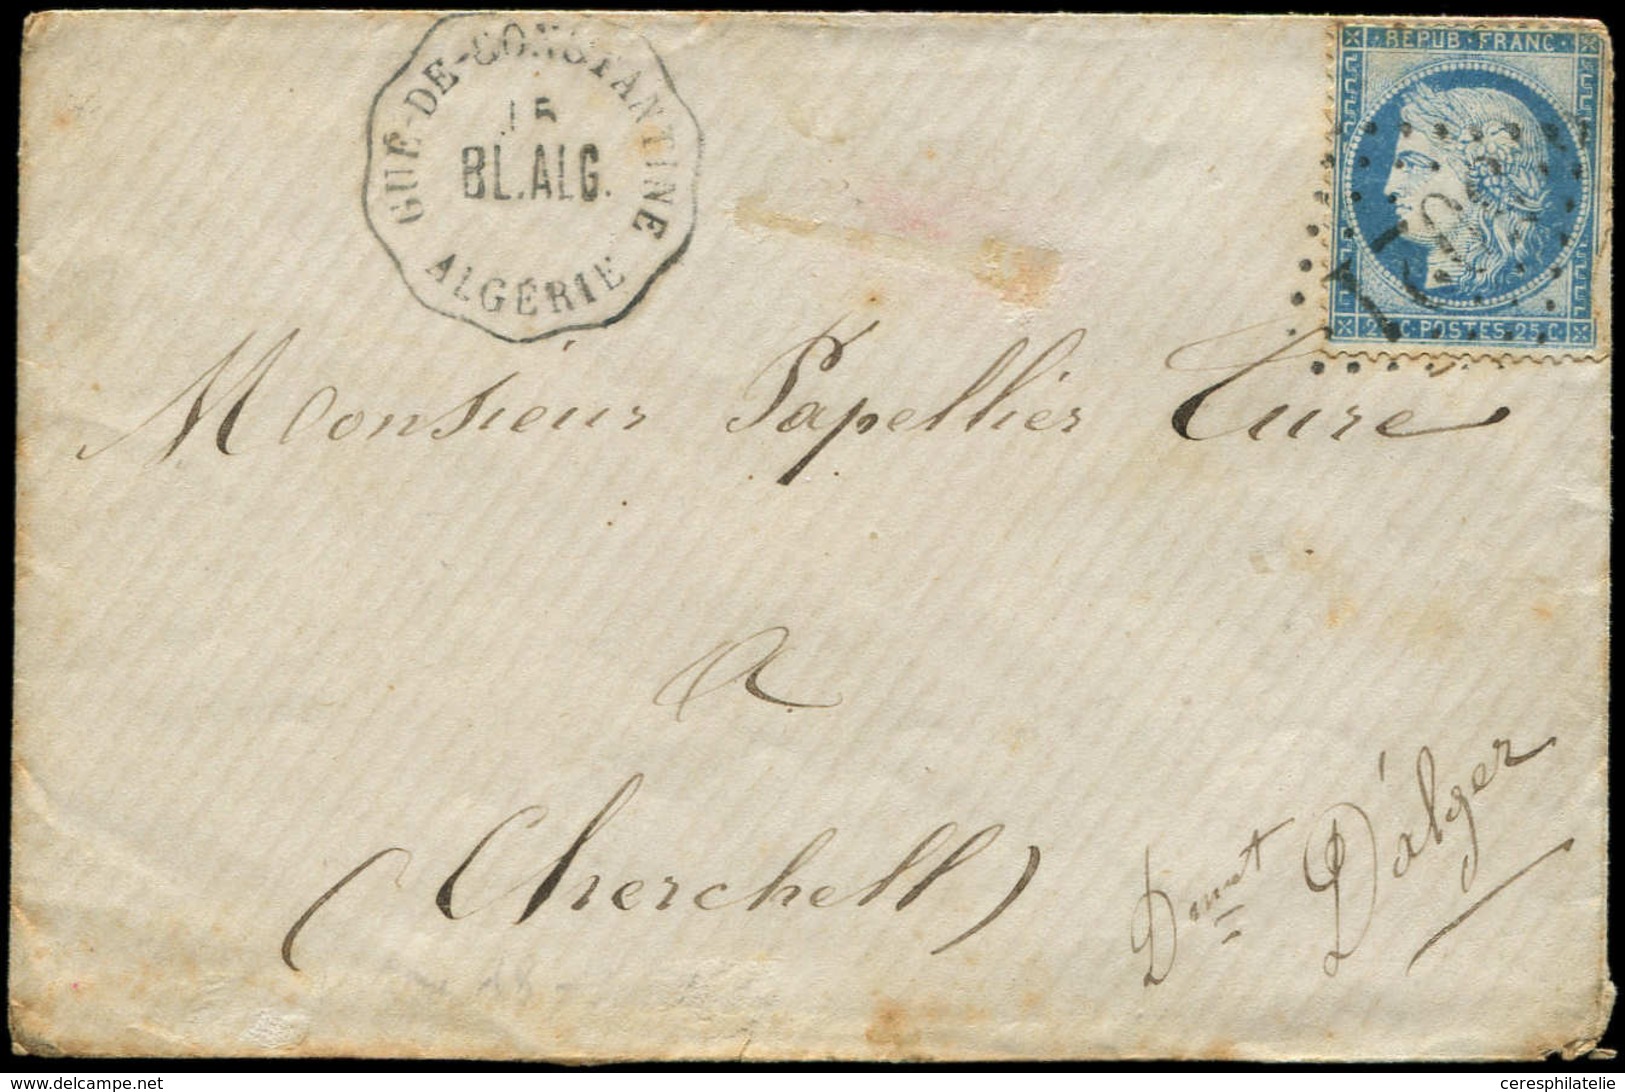 GUÉ-DE-CONSTANTINE
15
BL.ALG.
ALGÉRIE
REPUB·FRANC·
2 C·POSTES·25C
Monsieur Papellier Cure
a
(Cherchell)
Dmnt D'alger
www.delcampe.net
ceresphilatelie